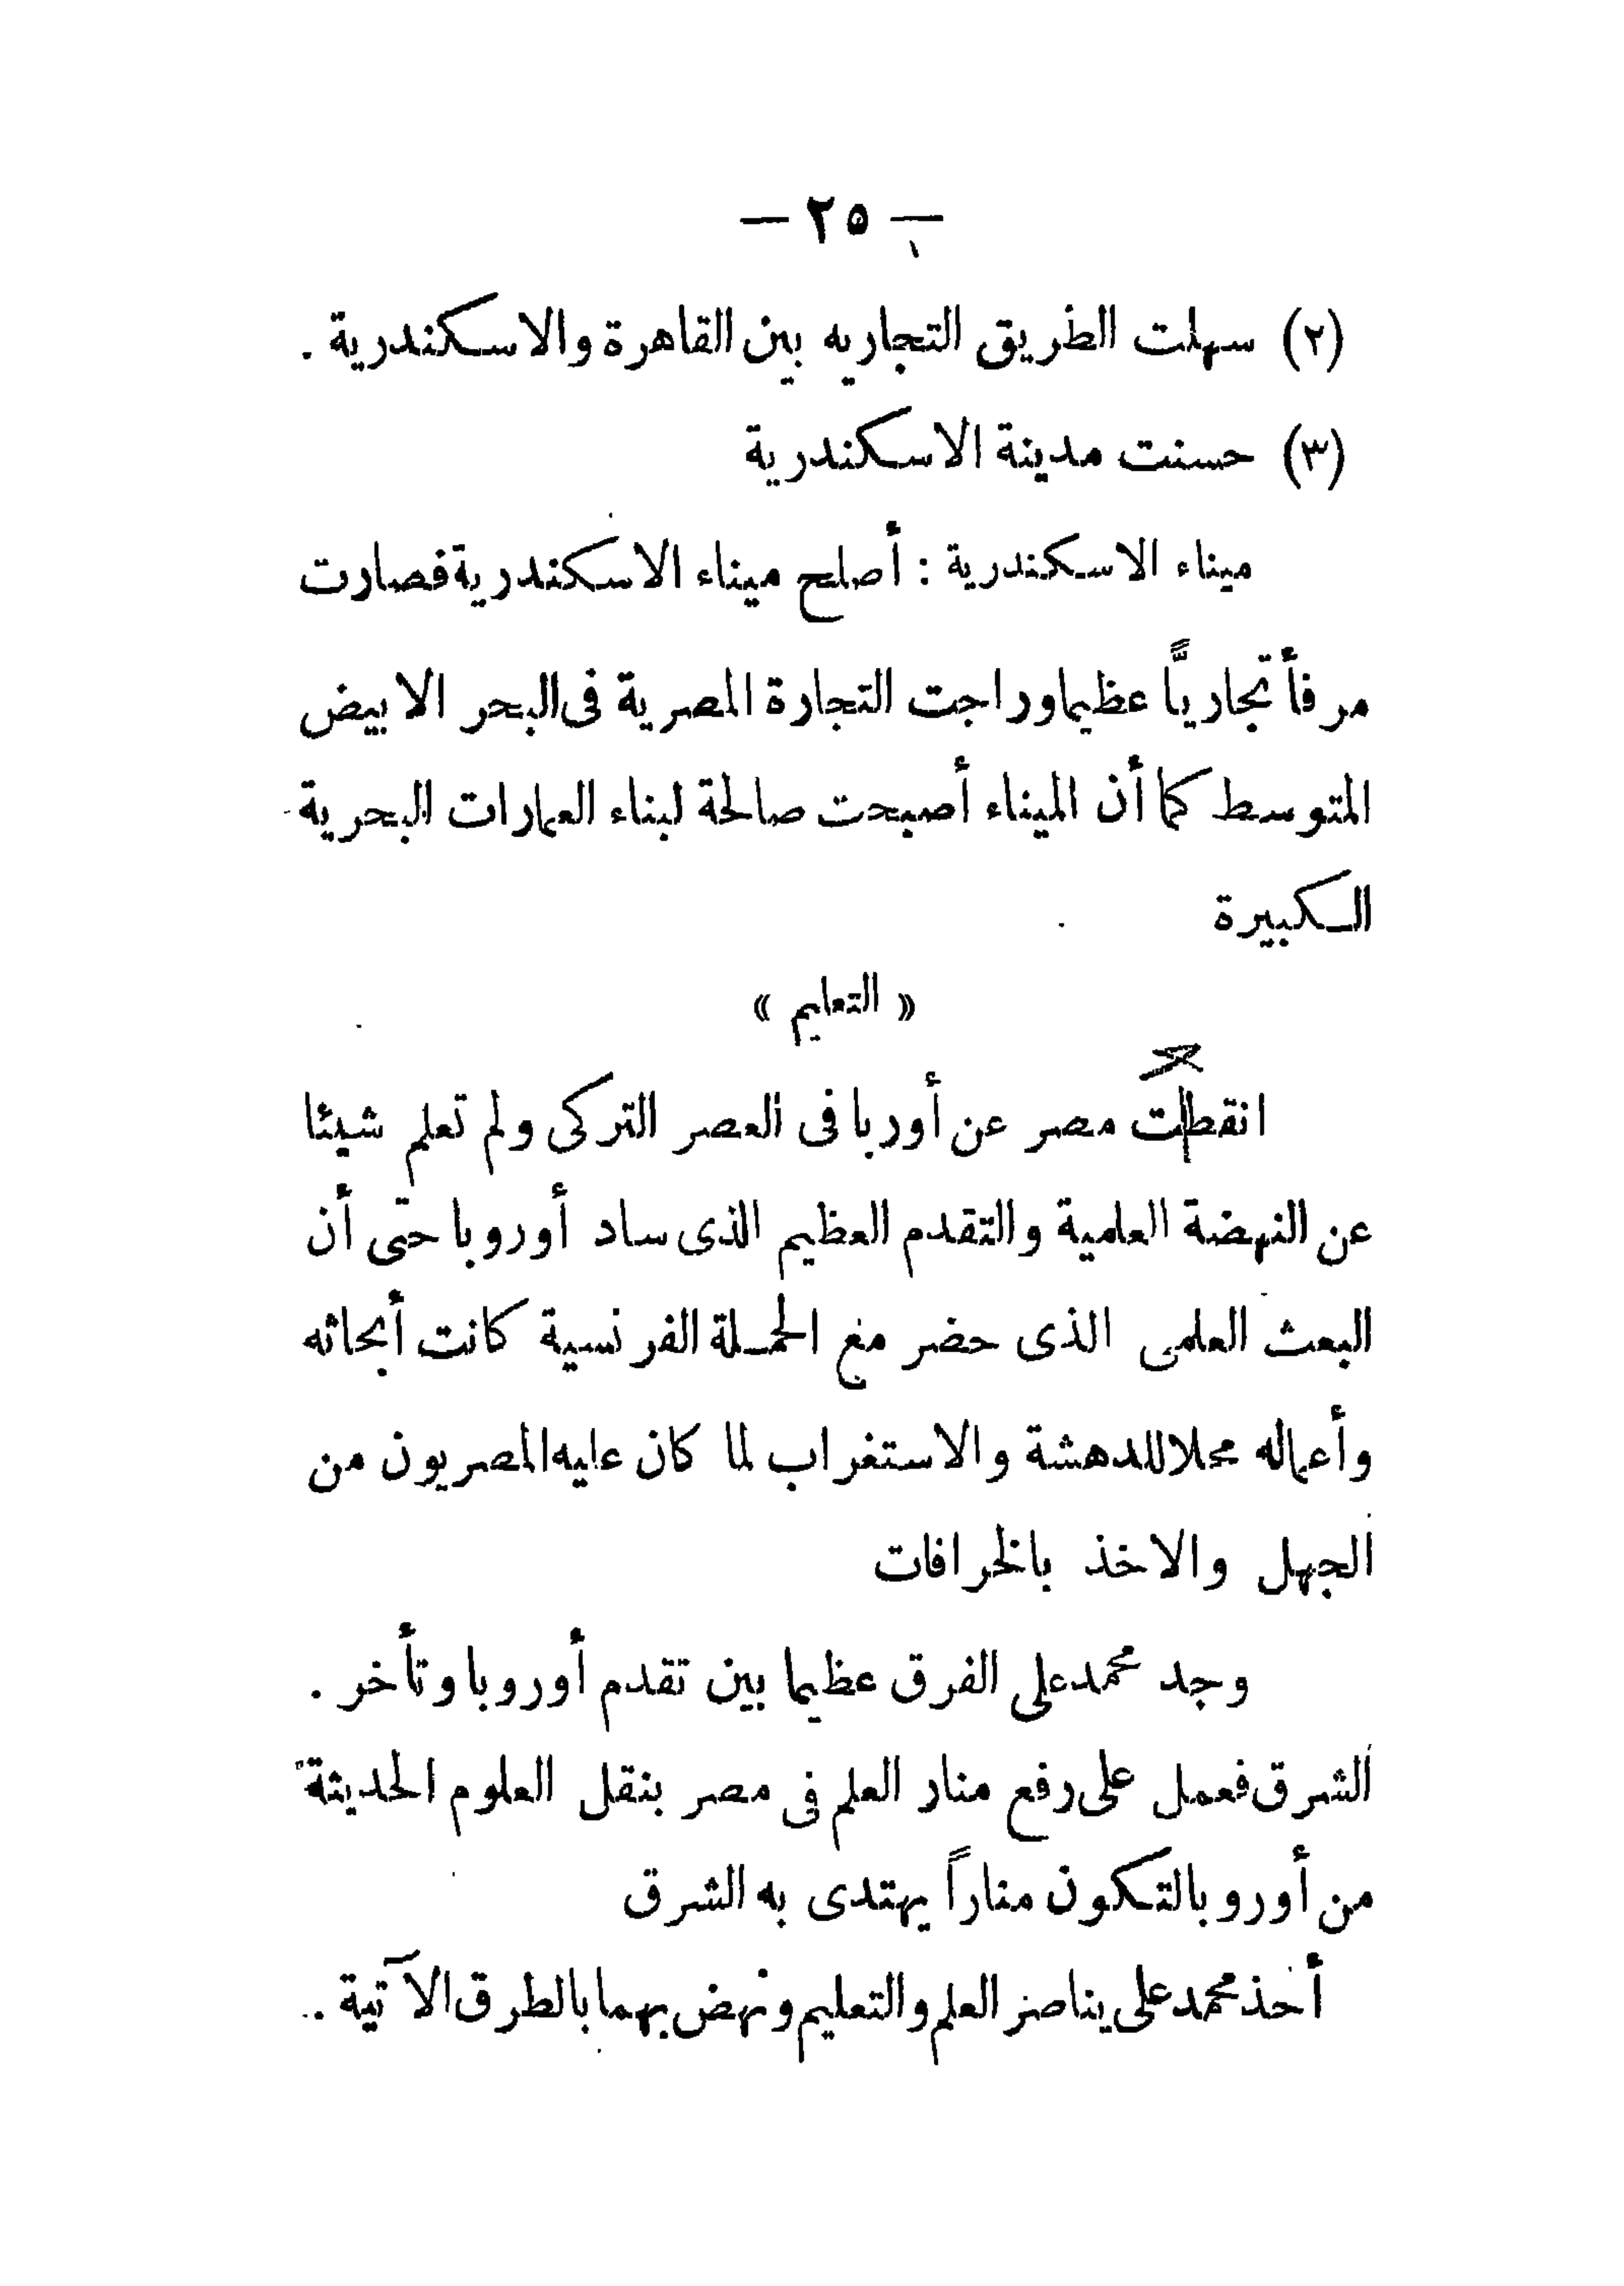 — ٢٥ —
(٢) سهلت الطريق التجاريه بين القاهرة والاسكندرية .
(٣) حسنت مدينة الاسكندرية
ميناء الاسكندرية : أصلح ميناء الاسكندرية فصارت
مرفأ تجاريًّا عظيما وراجت التجارة المصرية فى البحر الابيض
المتوسط كما أن الميناء أصبحت صالحة لبناء العمارات البحرية
الكبيرة
« التعليم »
انقطت مصر عن أوربا فى العصر التركى ولم تعلم شيئا
عن النهضة العلمية والتقدم العظيم الذى ساد أوروبا حتى أن
البعث العلمى الذى حضر مع الحملة الفرنسية كانت أبحاثه
وأعماله محلا للدهشة والاستغراب لما كان عليه المصريون من
الجهل والاخذ بالخرافات
وجد محمد على الفرق عظيما بين تقدم أوروبا وتأخر .
الشرق فعمل على رفع منار العلم فى مصر بنقل العلوم الحديثة
من أوروبا لتكون مناراً يهتدى به الشرق
أخذ محمد على يناصر العلم والتعليم ونهض بهما بالطرق الآتية .